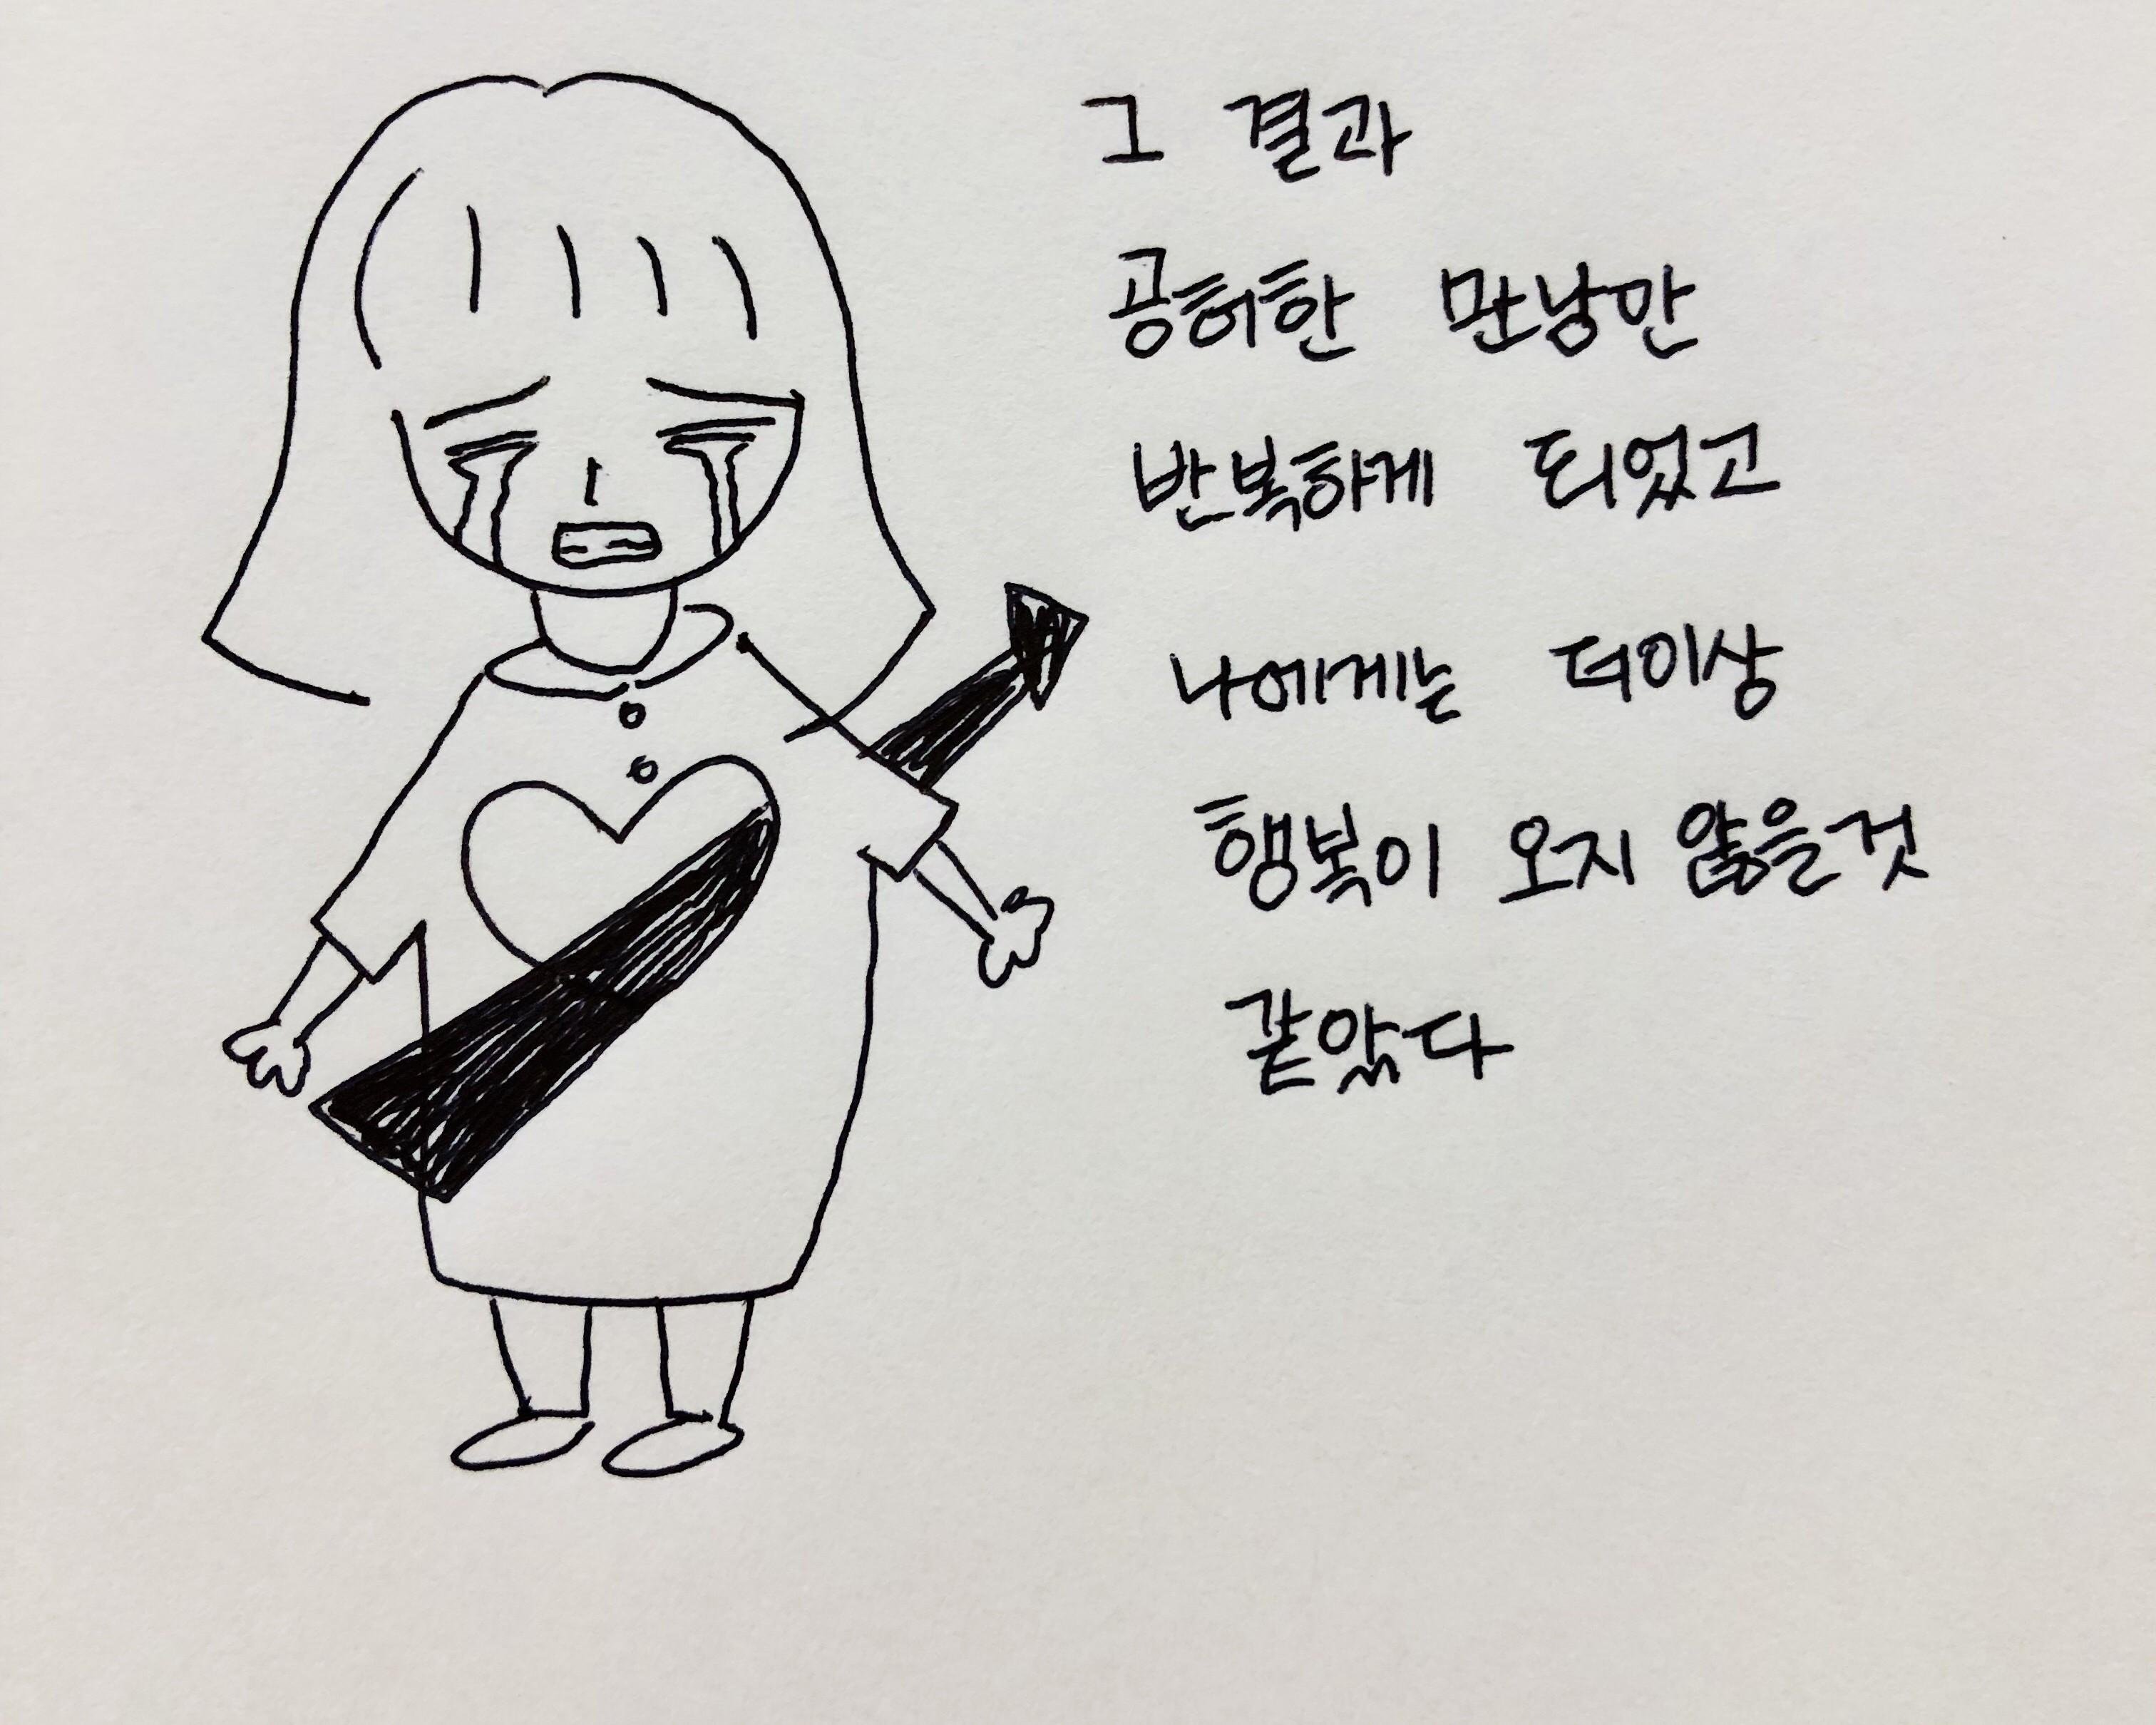 그 결과
공허한 만남만
반복하게 되었고
나에게는 더이상
행복이 오지 않을것
같았다